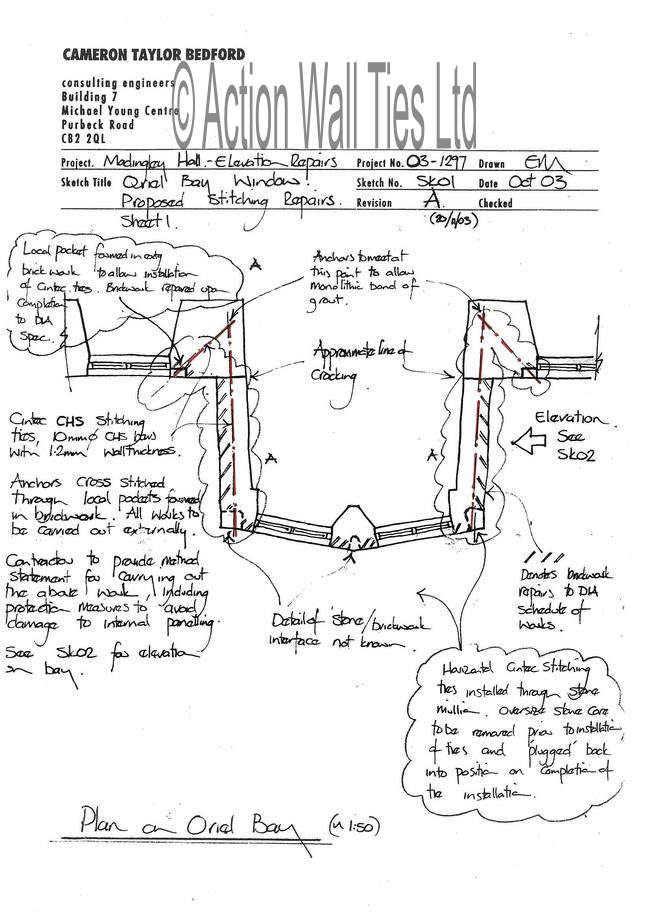 CAMERON TAYLOR BEDFORD
consulting engineers
Building 7
Michael Young Centre
Purbeck Road
CB2 2QL
© Action Wall Ties Ltd
Project. Madingley Hall.-Elevation Repairs Project No. 03-1297 Drawn EM
Sketch Title Orial Bay Window. Sketch No. SK01 Date Oct 03
Proposed Stitching Repairs. Revision A. Checked
Sheet 1. (20/11/03)
Local pocket formed in extg
brickwork to allow installation
of Cintec ties. Brickwork repaired upon
completion
to DLA
spec.
A
Anchors to meet at
this point to allow
Monolithic band of
grout.
Approximate line of
Cracking
Cintec CHS Stitching
ties, 10mmø CHS bars
with 1.2mm wall thickness.
A
A
Elevation.
See
SK02
Anchors cross stitched
through local pockets formed
in brickwork. All works to
be carried out externally.
Contractor to provide method
statement for carrying out
the above work, including
protection measures to avoid
damage to internal panelling.
See SK02 for elevation
on bay.
Detail of stone/brickwork
interface not known.
Denotes brickwork
repairs to DLA
schedule of
works.
Horizontal Cintec Stitching
ties installed through stone
mullion. Oversize Stone Core
to be removed prior to installation
of ties and 'plugged' back
into position on completion of
the installation.
Plan on Orial Bay (~1:50)